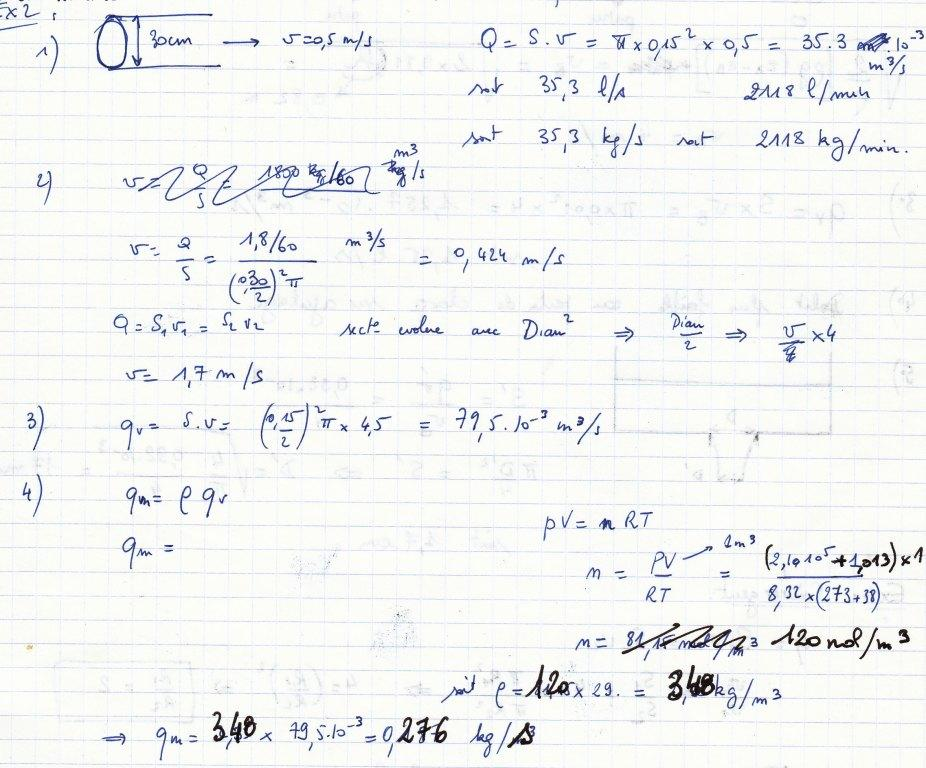 Ex2.
1) 30cm → v=0,5 m/s
Q = S.v = π×0,15² × 0,5 = 35.3 .10⁻³ m³/s
soit 35,3 l/s 2118 l/min
soit 35,3 kg/s soit 2118 kg/min.
2) v = Q/S = 1800 kg/60 m³/s
v = Q/S = (1,8/60)/((0,30/2)²π) m³/s = 0,424 m/s
Q = S₁v₁ = S₂v₂ sectº evolue avec Diam² ⇒ Diam/2 ⇒ v×4
v = 1,7 m/s
3) qv = S.v = (0,15/2)²π × 4,5 = 79,5.10⁻³ m³/s
4) qm = ρ qv
pV = nRT
qm =
n = PV/RT → 1m³ = (2,1.10⁵+1,013)×1/8,32×(273+38)
n = 120 mol/m³
soit ρ = 120 × 29. = 3,48 kg/m³
⇒ qm = 3,48 × 79,5.10⁻³ = 0,276 kg/s